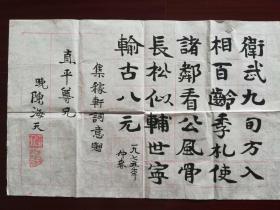 衛武九旬方入
相百齡季札使
諸鄰看公風骨
長松似輔世寧
輸古八元
一九七五年
仲春
集稼軒詞意贈
直平尊兄
晚陳海天